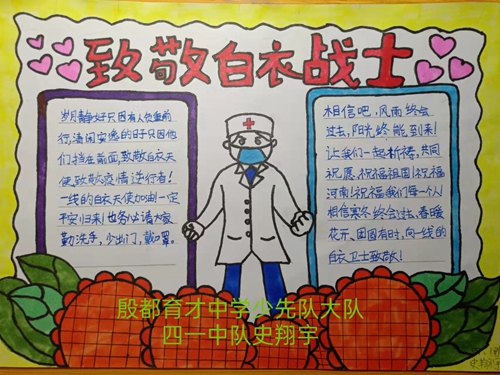 致敬白衣战士
岁月静好只因有人负重前
行,清闲安逸的日子只因他
们挡在前面,致敬白衣天
使,致敬疫情逆行者!
一线的白衣天使加油一定
平安归来!也务必请大家
勤洗手,少出门,戴口罩。
相信吧,风雨终会
过去,阳光终能到来!
让我们一起祈祷,共同
祝愿,祝福祖国!祝福
河南!祝福我们每一个人!
相信寒冬终会过去,春暖
花开、团圆有时,向一线的
白衣卫士致敬!
殷都育才中学少先队大队
四一中队史翔宇